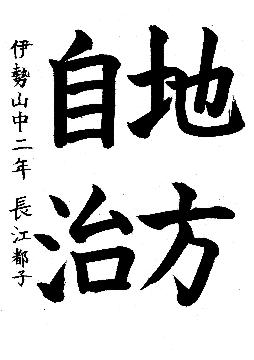 地方
自治
伊勢山中二年 長江都子